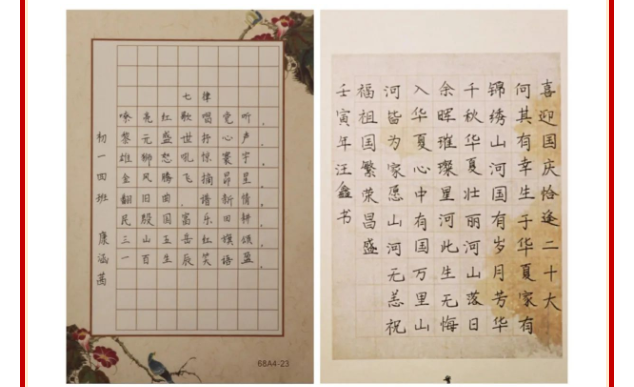 七律
嘹亮红歌唱党听,
黎元盛世抒心声
雄狮怒吼惊寰宇
金凤腾飞摘昴星。
翻旧曲,谱新情。
民殷国富乐旧耕。
三山五岳红旗颂
一百生辰笑语盈。
初一四班 康涵菡
68A4-23
喜迎国庆恰逢二十大
何其有幸生于华夏家有
锦绣山河国有岁月芳华
千秋华夏壮丽河山落日
余晖璀璨星河此生无悔
入华夏心中有国万里山
河皆为家愿山河无恙祝
福祖国繁荣昌盛
壬寅年汪鑫书